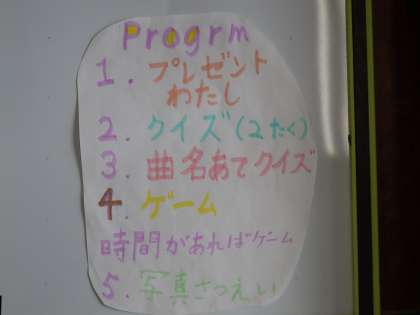 Progrm
1. プレゼント
わたし
2. クイズ(2たく)
3. 曲名あてクイズ
4. ゲーム
時間があればゲーム
5. 写真さつえい